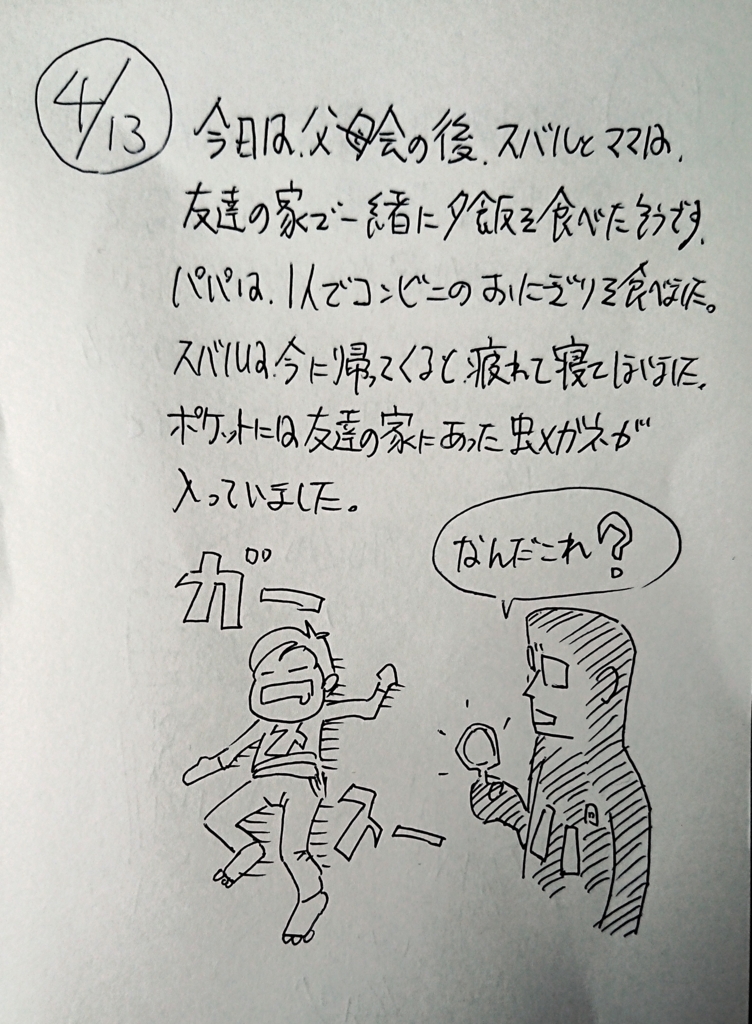 4/13
今日は、父母会の後、スバルとママは、
友達の家で一緒に夕飯を食べたそうです。
パパは、1人でコンビニのおにぎりを食べました。
スバルは、今に帰ってくると、疲れて寝てしまいました。
ポケットには友達の家にあった虫メガネが
入っていました。
なんだこれ?
ガー
ス
スー